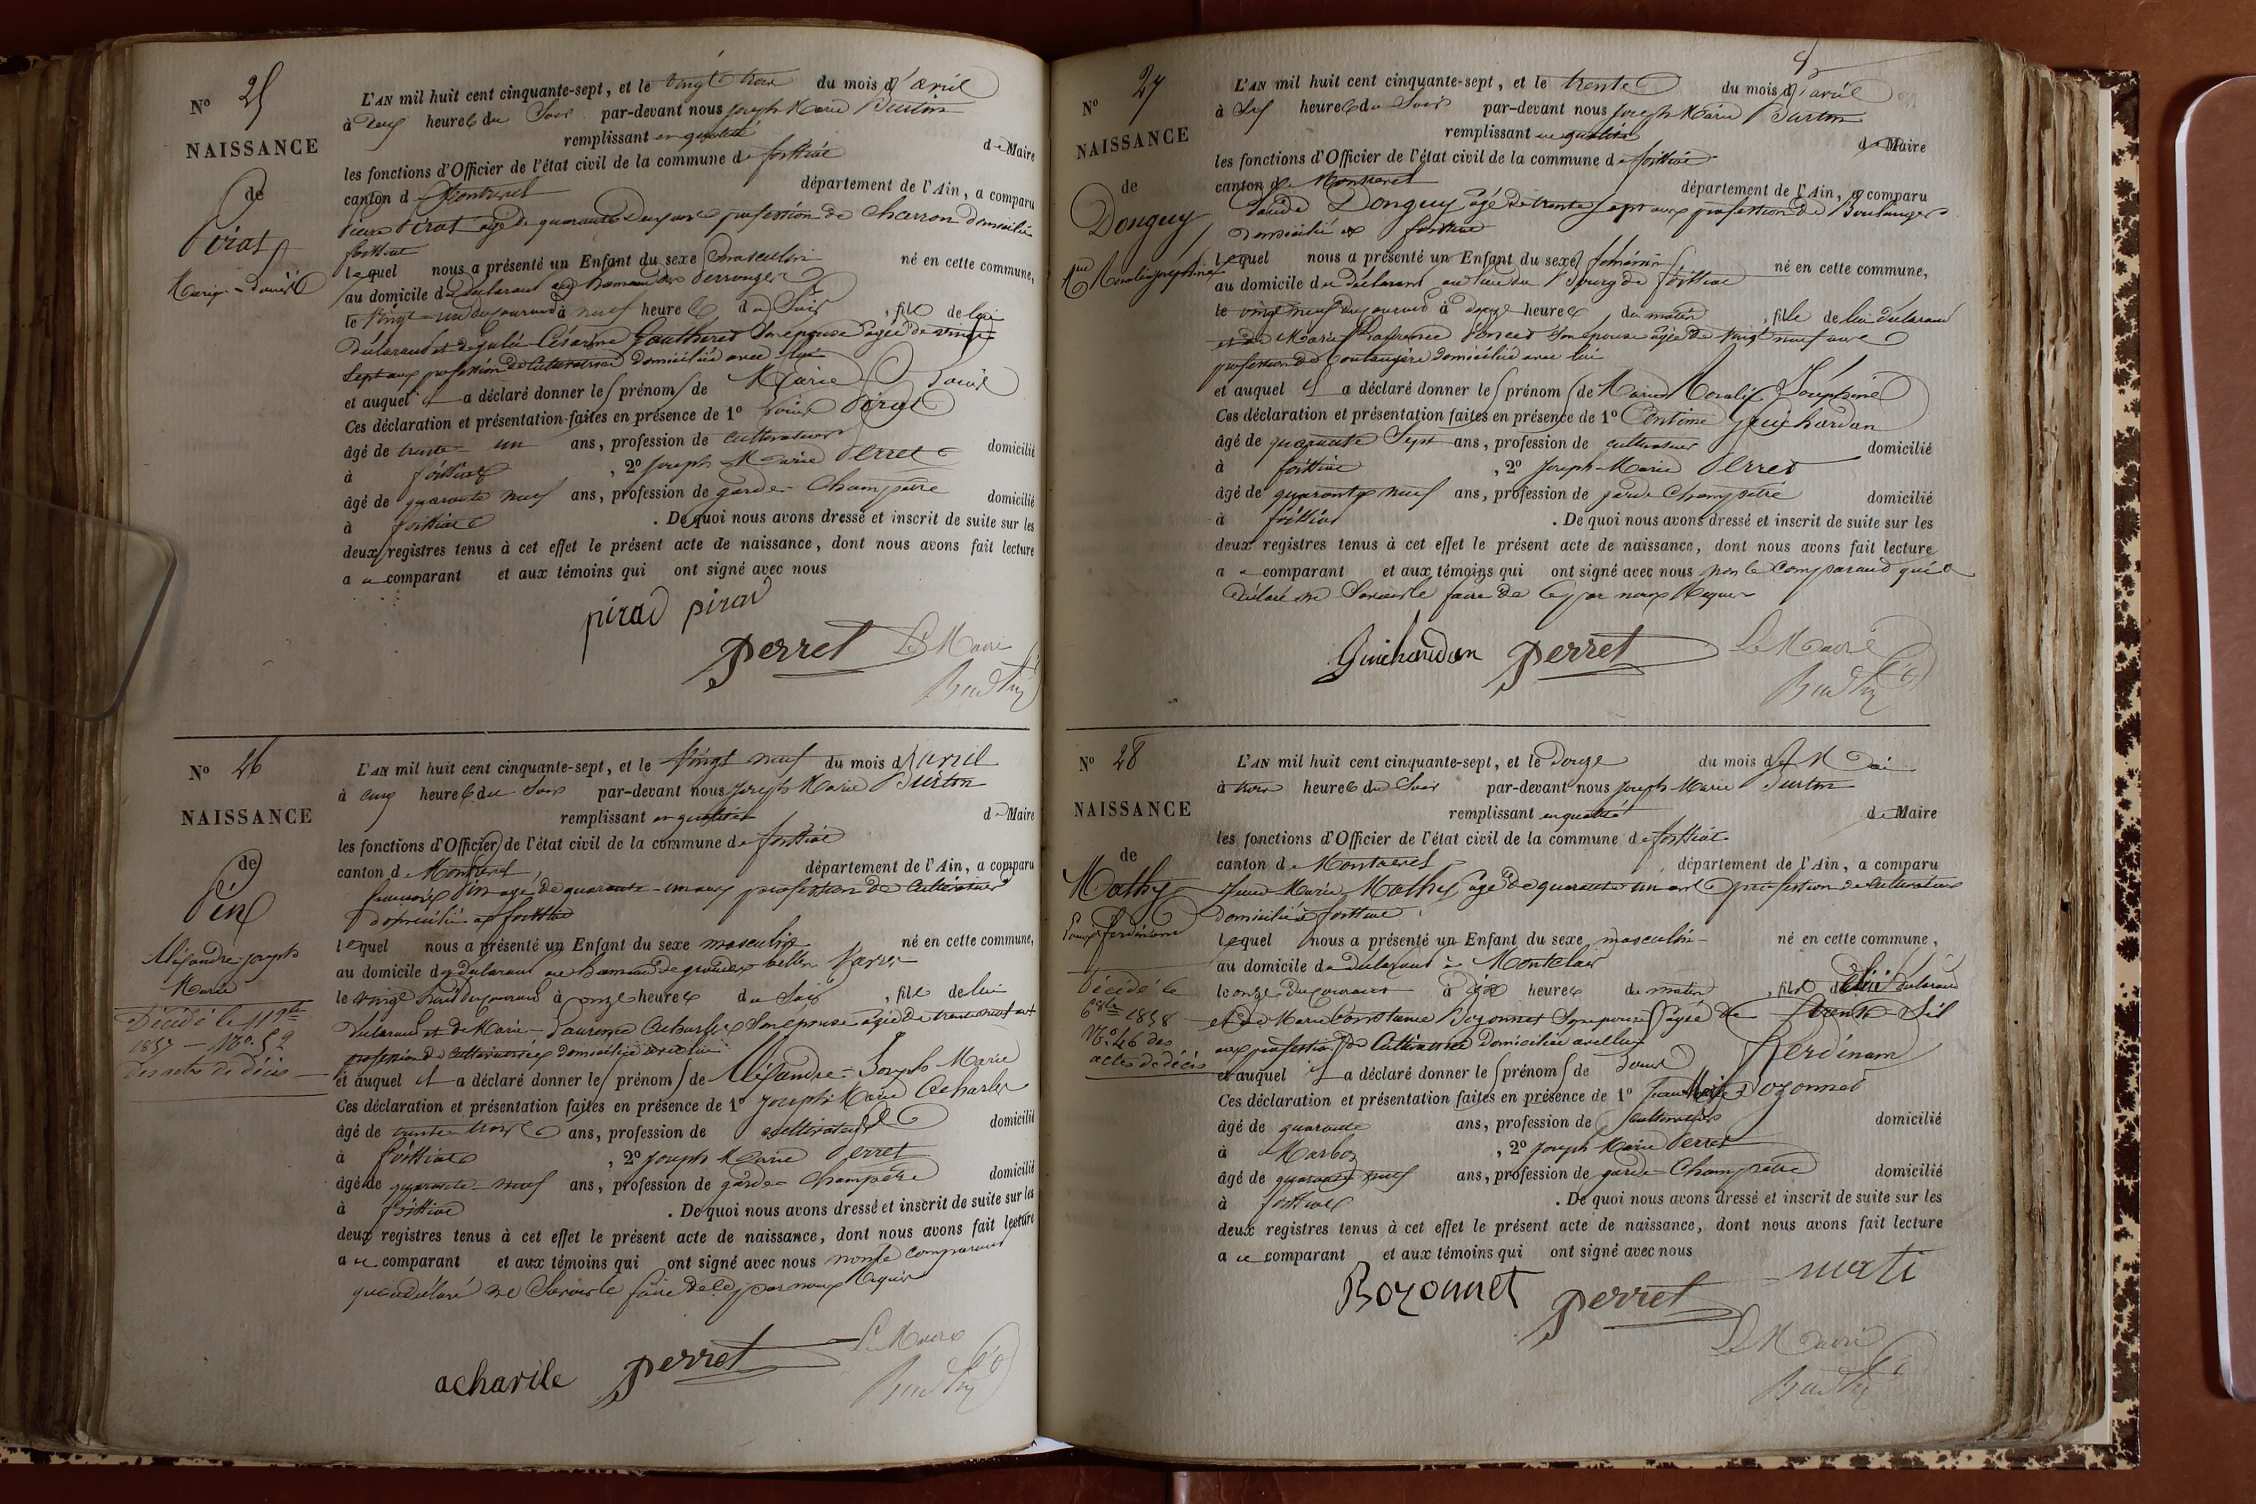 N° 25
NAISSANCE
de
Pirat
Marie-Louis
L'AN mil huit cent cinquante-sept, et le vingt trois du mois d'avril
à heures du Soir par-devant nous Joseph Marie Burtin
remplissant en qualité de Maire
les fonctions d'Officier de l'état civil de la commune de
canton de Montrevel département de l'Ain, a comparu
Pirat agé de quarante deux ans profession de charron domicilié
lequel nous a présenté un Enfant du sexe masculin né en cette commune,
au domicile du déclarant au hameau des
le vingt-un du courant à neuf heures du Soir, fils de lui
déclarant et de Julie Césarine Gautheret Son épouse agée de vingt
sept ans profession de Cultivatrice domiciliée avec lui
et auquel il a déclaré donner les prénoms de Marie Louis
Ces déclaration et présentation faites en présence de 1° Pirat
âgé de trente un ans, profession de cultivateur domicilié
à , 2° Joseph Marie Perret
âgé de quarante neuf ans, profession de garde-Champêtre domicilié
à . De quoi nous avons dressé et inscrit de suite sur les
deux registres tenus à cet effet le présent acte de naissance, dont nous avons fait lecture
au comparant et aux témoins qui ont signé avec nous
pirad pirad
perret Le Maire
Burtin
N° 26
NAISSANCE
de
Pin
Alexandre-Joseph
Marie
Décédé le 11 9bre
1857 - N° 52
des actes de décès
L'AN mil huit cent cinquante-sept, et le vingt neuf du mois d'avril
à cinq heures du Soir par-devant nous Joseph Marie Burtin
remplissant en qualité de Maire
les fonctions d'Officier de l'état civil de la commune de
canton de Montrevel département de l'Ain, a comparu
François Pin agé de quarante-un ans profession de Cultivateur
Domicilié à
lequel nous a présenté un Enfant du sexe masculin né en cette commune,
au domicile du déclarant au hameau de
le vingt huit du courant à onze heures du Soir, fils de lui
déclarant et de Marie-Laurence Acharles Son épouse agée de trente
profession de Cultivatrice domiciliée avec lui
et auquel il a déclaré donner les prénoms de Alexandre-Joseph Marie
Ces déclaration et présentation faites en présence de 1° Joseph Marie Acharles
âgé de trente trois ans, profession de cultivateur domicilié
à , 2° Joseph Marie Perret
âgé de quarante-neuf ans, profession de garde-Champêtre domicilié
à . De quoi nous avons dressé et inscrit de suite sur les
deux registres tenus à cet effet le présent acte de naissance, dont nous avons fait lecture
au comparant et aux témoins qui ont signé avec nous non le comparant
qui a déclaré ne Savoir le faire de ce par nous Requis
acharile perret Le Maire
Burtin
N° 27
NAISSANCE
de
Donguy
Marie Josephine
L'AN mil huit cent cinquante-sept, et le trente du mois d'avril
à Six heures du Soir par-devant nous Joseph Marie Burtin
remplissant en qualité de Maire
les fonctions d'Officier de l'état civil de la commune de
canton de Montrevel département de l'Ain, a comparu
Donguy agé de trente sept ans profession de Boulanger
domicilié à
lequel nous a présenté un Enfant du sexe féminin né en cette commune,
au domicile du déclarant au lieu du Bourg de
le vingt neuf du courant à onze heures du matin, fille de lui déclarant
et de Marie Son épouse agée de vingt neuf ans
profession de boulangère domiciliée avec lui
et auquel il a déclaré donner les prénoms de Marie Joséphine
Ces déclaration et présentation faites en présence de 1° Guichardan
âgé de quarante Sept ans, profession de cultivateur domicilié
à , 2° Joseph-Marie Perret
âgé de quarante neuf ans, profession de garde Champêtre domicilié
à . De quoi nous avons dressé et inscrit de suite sur les
deux registres tenus à cet effet le présent acte de naissance, dont nous avons fait lecture
au comparant et aux témoins qui ont signé avec nous non le comparant qui a
déclaré ne Savoir le faire de ce par nous Requis
Guichardan perret Le Maire
Burtin
N° 28
NAISSANCE
de
Mathy
Louis Ferdinand
Décédé le
6 8bre 1858
N° 46 des
actes de décès
L'AN mil huit cent cinquante-sept, et le Douze du mois de Mai
à trois heures du Soir par-devant nous Joseph Marie Burtin
remplissant en qualité de Maire
les fonctions d'Officier de l'état civil de la commune de
canton de Montrevel département de l'Ain, a comparu
Marie Mathy agé de quarante un ans profession de Cultivateur
domicilié à
lequel nous a présenté un Enfant du sexe masculin né en cette commune,
au domicile du déclarant à Montclair
le onze du courant à dix heures du matin, fils de lui déclarant
et de Marie Constance Bozonnet Son épouse agée de trente-Six
ans profession de Cultivatrice domiciliée avec lui
et auquel il a déclaré donner les prénoms de Louis Ferdinand
Ces déclaration et présentation faites en présence de 1° Jean Marie Bozonnet
âgé de quarante ans, profession de cultivateur domicilié
à Marboz , 2° Joseph Marie Perret
âgé de quarante neuf ans, profession de garde-Champêtre domicilié
à . De quoi nous avons dressé et inscrit de suite sur les
deux registres tenus à cet effet le présent acte de naissance, dont nous avons fait lecture
au comparant et aux témoins qui ont signé avec nous
Bozonnet perret mati
Le Maire
Burtin